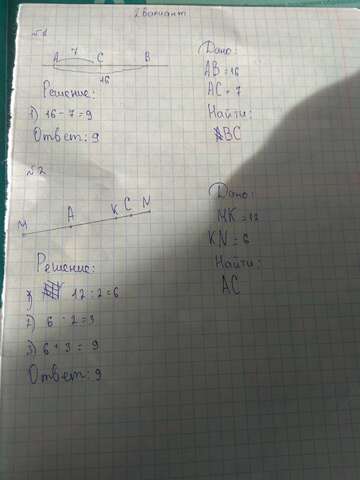 2 Вариант
№1
7
A C B
16
Дано:
AB = 16
AC = 7
Найти:
BC
Решение:
1) 16 - 7 = 9
Ответ: 9
№2
M A K C N
Дано:
MK = 12
KN = 6
Найти:
AC
Решение:
1) 12 : 2 = 6
2) 6 : 2 = 3
3) 6 + 3 = 9
Ответ: 9